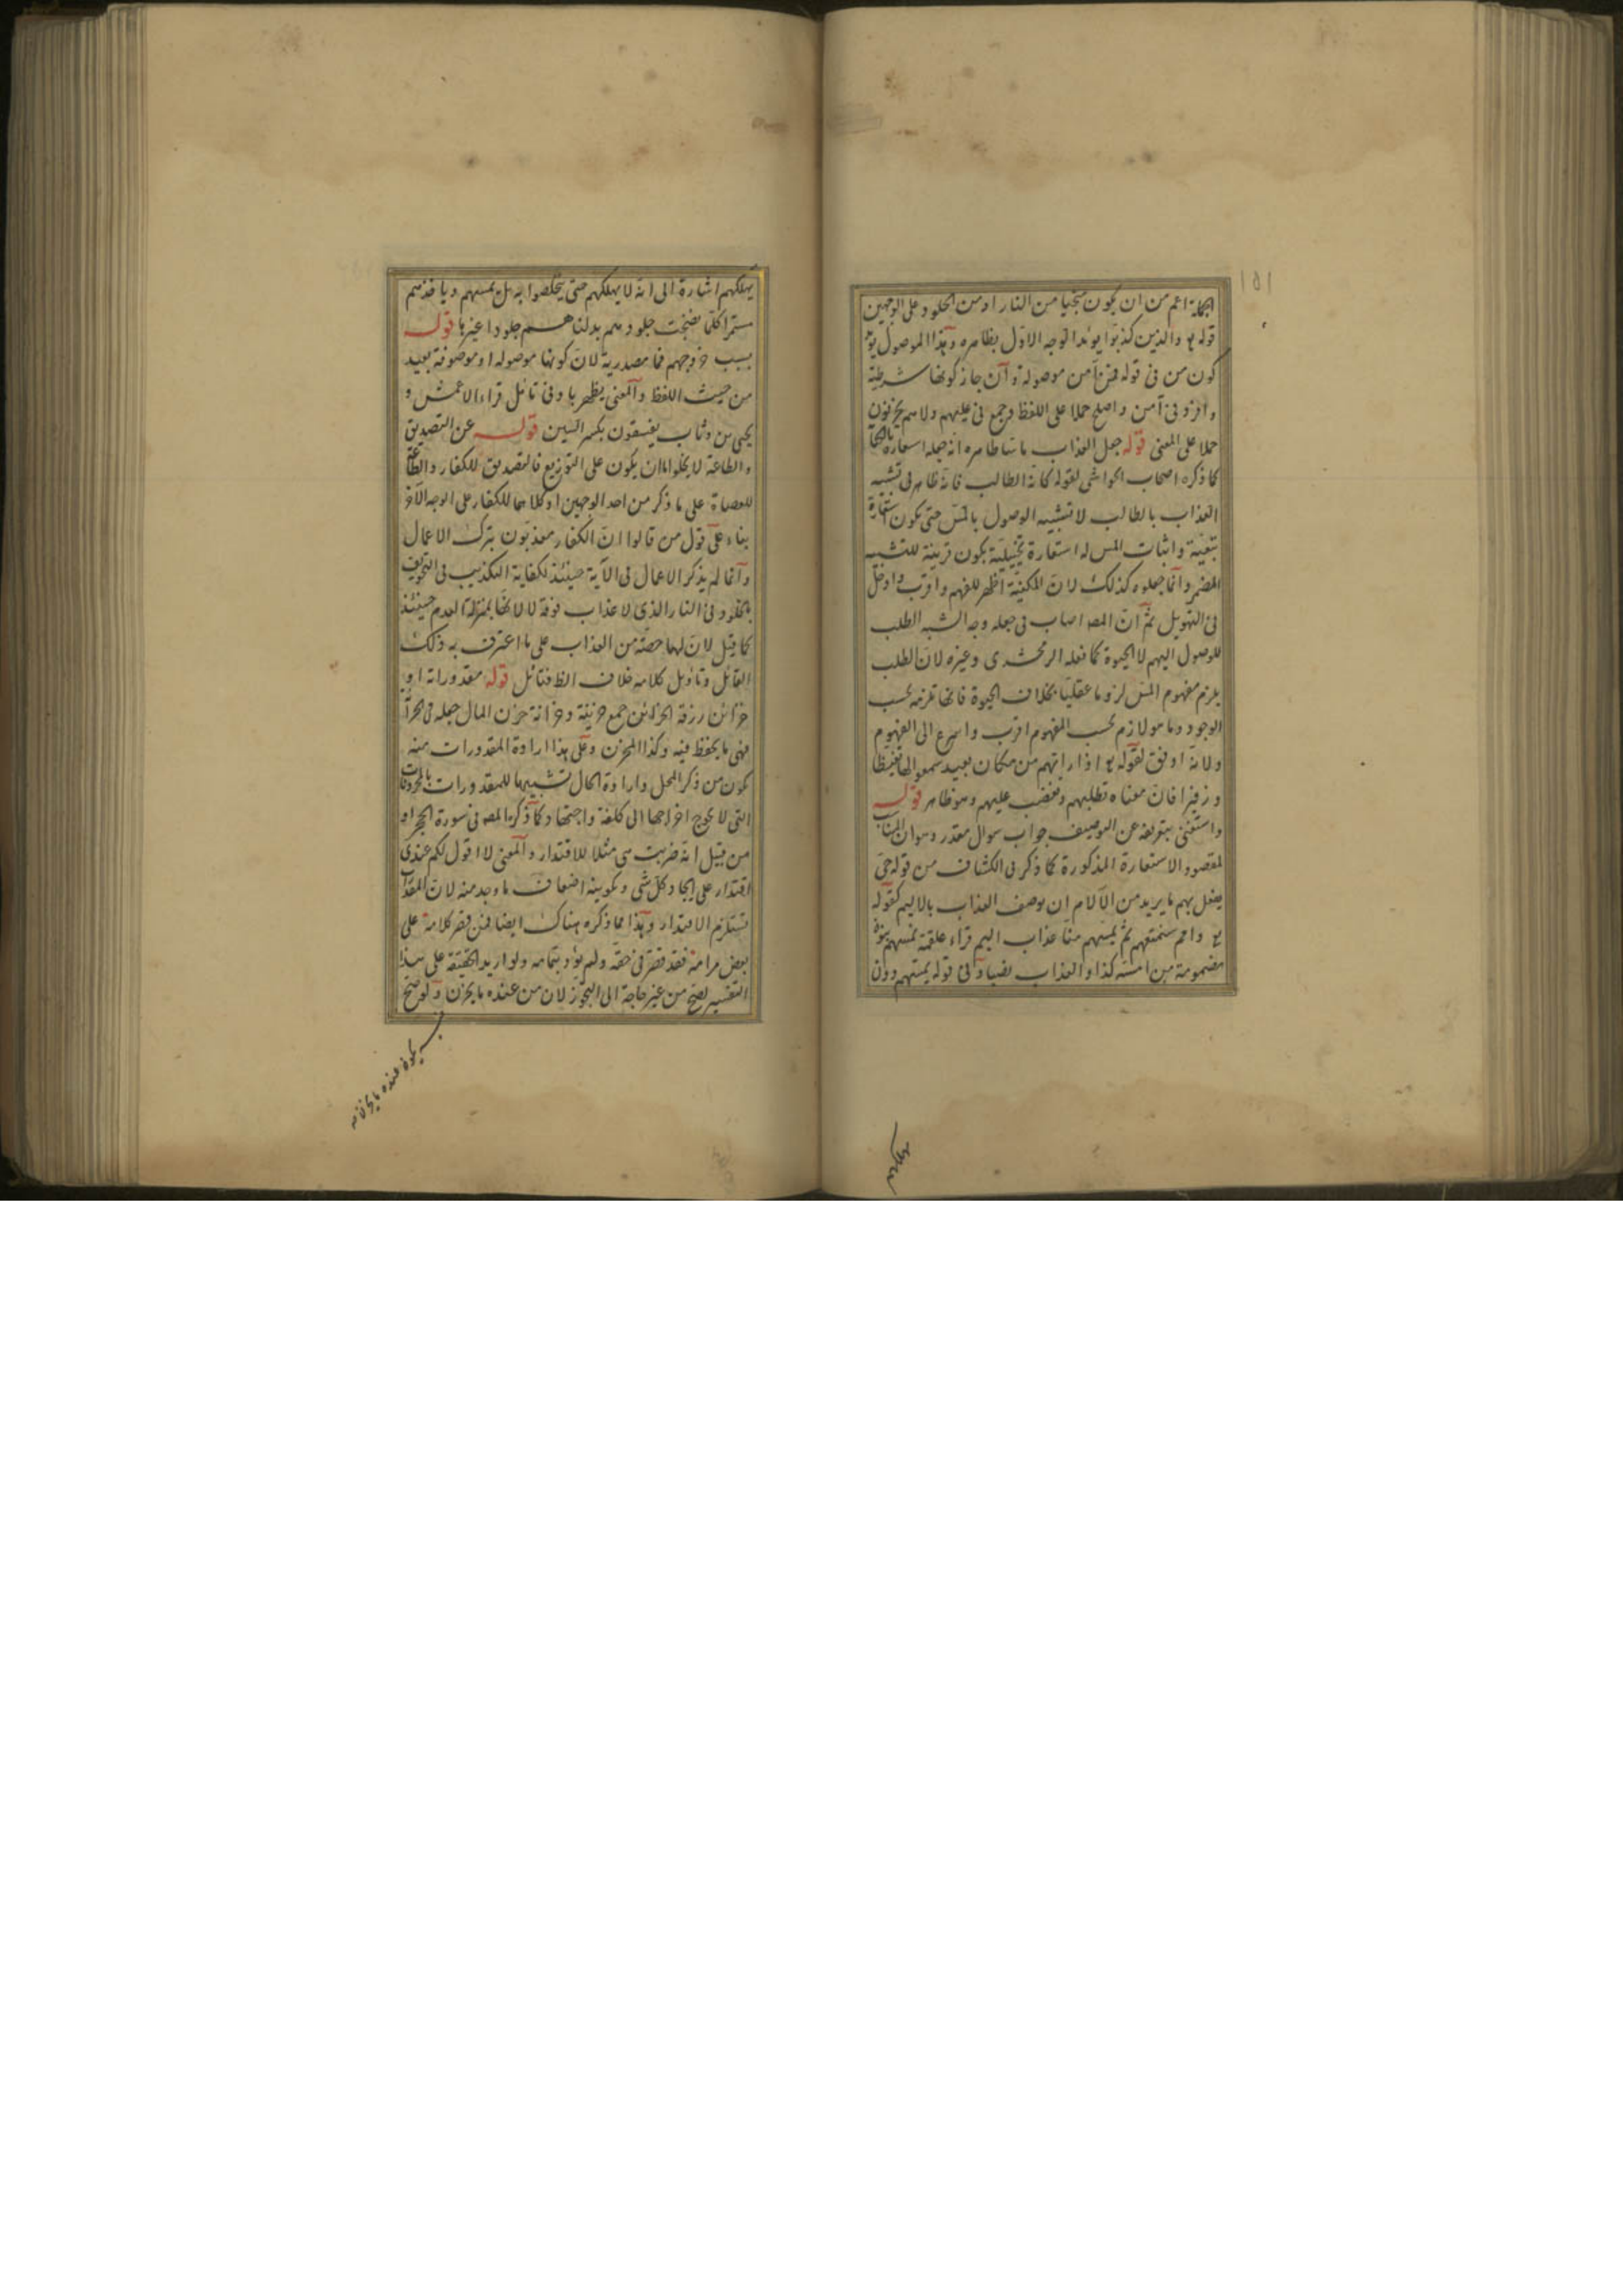 ١٥١
الجملة اعم من ان يكون منجيا من النار او من الخلود وعلى الوجهين
قوله تع والذين كذبوا يؤيد الوجه الاول بظاهره وهذا الموصول يؤيد
كون من في قوله فمن آمن موصولة وان جاز كونها شرطية
وافرد في آمن واصلح حملا على اللفظ وجمع في عليهم ولا هم يحزنون
حملا على المعنى قوله جعل العذاب ماسا ظاهره انه جعله استعارة بالكناية
كما ذكره اصحاب الحواشي لقوله كانه الطالب فانه ظاهر في تشبيه
العذاب بالطالب لا تشبيه الوصول بالمس حتى يكون استعارة
تبعية واثبات المس له استعارة تخييلية يكون قرينة للتشبيه
المضمر وانما جعلوه كذلك لان المكنية اظهر للفهم واقرب وادخل
في التهويل ثم ان المصـ اصاب في جعله وجه الشبه الطلب
للوصول اليهم لا الحيوة كما فعله الزمخشري وغيره لان الطلب
يلزم مفهوم المس لزوما عقليا بخلاف الحيوة فانها تلزمه بحسب
الوجود وما هو لازم بحسب المفهوم اقرب واسرع الى الفهوم
ولانه اوفق لقوله تع اذا راتهم من مكان بعيد سمعوا لها تغيظا
وزفيرا فان معناه تطلبهم وتغضب عليهم وهو ظاهر قوله
واستغنى بتعريفه عن التوصيف جواب سوال مقدر وهو ان المناسب
لمقصود الاستعارة المذكورة كما ذكر في الكشاف من قوله حي
يفعل بهم ما يريد من الآلام ان يوصف العذاب بالاليم كقوله
تع وامم سنمتعهم ثم يمسهم منا عذاب اليم قراء علقمة نمسهم بنون
مضمومة من امسه كذا والعذاب نصبا وفي قوله يمسهم دون
يهلكهم
يهلكهم اشارة الى انه لا يهلكهم حتى يخلصوا به بل يمسهم وياخذهم
مستمرا كلما نضجت جلودهم بدلناهم جلودا غيرها قوله
بسبب خروجهم فما مصدرية لان كونها موصولة او موصوفة بعيد
من حيث اللفظ والمعنى يظهر بادنى تامل قراء الاعمش و
يحيى بن وثاب يفسقون بكسر السين قوله عن التصديق
والطاعة لا يخلو اما ان يكون على التوزيع فالتصديق للكفار والطاعة
للعصاة على ما ذكر من احد الوجهين او كلاهما للكفار على الوجه الآخر
بناء على قول من قالوا ان الكفار معذبون بترك الاعمال
وانما لم يذكر الاعمال في الآية حينئذ لكفاية التكذيب في التخويف
بالخلود في النار الذي لا عذاب فوقه لا لانها بمنزلة العدم حينئذ
كما قيل لان لها حصة من العذاب على ما اعترف به ذلك
القائل وتاويل كلامه خلاف الظ فتامل قوله مقدوراته او
خزائن رزقه الخزائن جمع خزينة وخزانة خزن المال جعله في الخزانة
فهي ما يحفظ فيه وكذا المخزن وعلى هذا ارادة المقدورات منه
يكون من ذكر المحل وارادة الحال تشبيها للمقدورات بالمخزونات
التي لا يحوج اخراجها الى كلفة واجتهاد كما ذكره المصـ في سورة الحجر او
من قبيل انه ضربت هي مثلا للاقتدار والمعنى لا اقول لكم عندي
اقتدار على ايجاد كل شي وتكوينه اضعاف ما وجد منه لان المقدورات
تستلزم الاقتدار وهذا مما ذكره هناك ايضا فمن قصر كلامه على
بعض مرامه فقد قصر في حقه ولم يؤد بتمامه ولو اريد الحقيقة على هذا
التفسير لصح من غير حاجة الى التجوز لان من عنده ما يخزن ولو صح
يكون عنده ما يخزن فيه